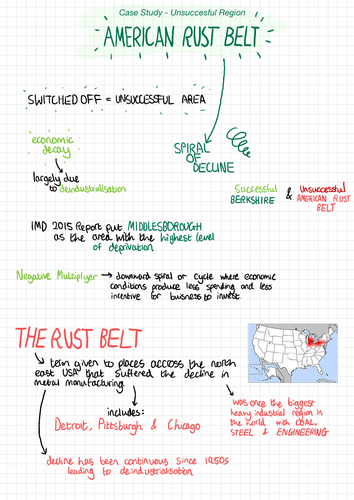 Case Study - Unsuccesful Region
AMERICAN RUST BELT
SWITCHED OFF = UNSUCCESSFUL AREA
economic
decay
largely due
to deindustrialisation
SPIRAL
OF
DECLINE
Successful
BERKSHIRE
&
Unsuccessful
AMERICAN RUST
BELT
IMD 2015 Report put MIDDLESBOROUGH
as the area with the highest level
of deprivation
Negative Multiplyer → downward spiral or cycle where economic
conditions produce less spending and less
incentive for business to invest.
THE RUST BELT
term given to places accross the north
east USA that suffered the decline in
metal manufacturing
includes:
Detroit, Pittsburgh & Chicago
was once the biggest
heavy industrial region in
the world with COAL,
STEEL & ENGINEERING
decline has been continuous since 1950s
leading to deindustrialisation